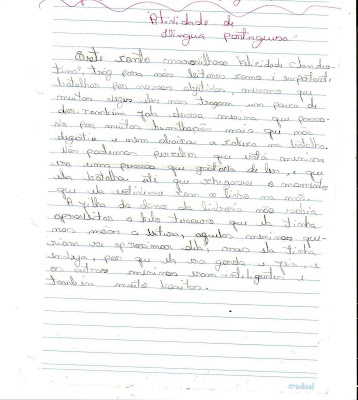 Atividade de
Língua portuguesa
Este conto maravilhoso "Felicidade Clandes-
tina", traz para nos leitores como é important
batalhar por nossos objetivos, mesmo que
muitas vezes eles nos tragam um pouco de
dor. também fala dessa menina que passa-
va por muitas humilhações mais que nao
desistia e nem abaixa a cabeça na batalha.
Nós podemos perceber que esta menina
era uma pessoa que gostava de ler, e que
ela batalha até que chegasse o momento
que ela estivesse com o livro na mão.
A filha do dono da livraria não sabia
aproveitar o belo tesouro que ela tinha
nas mãos a leitura, aquelas meninas que-
riam se aproximar dela, mais ela tinha
inveja, por que ela era gorda e feia, e
as outras meninas eram inteligentes e
também muito bonitas.
credeal